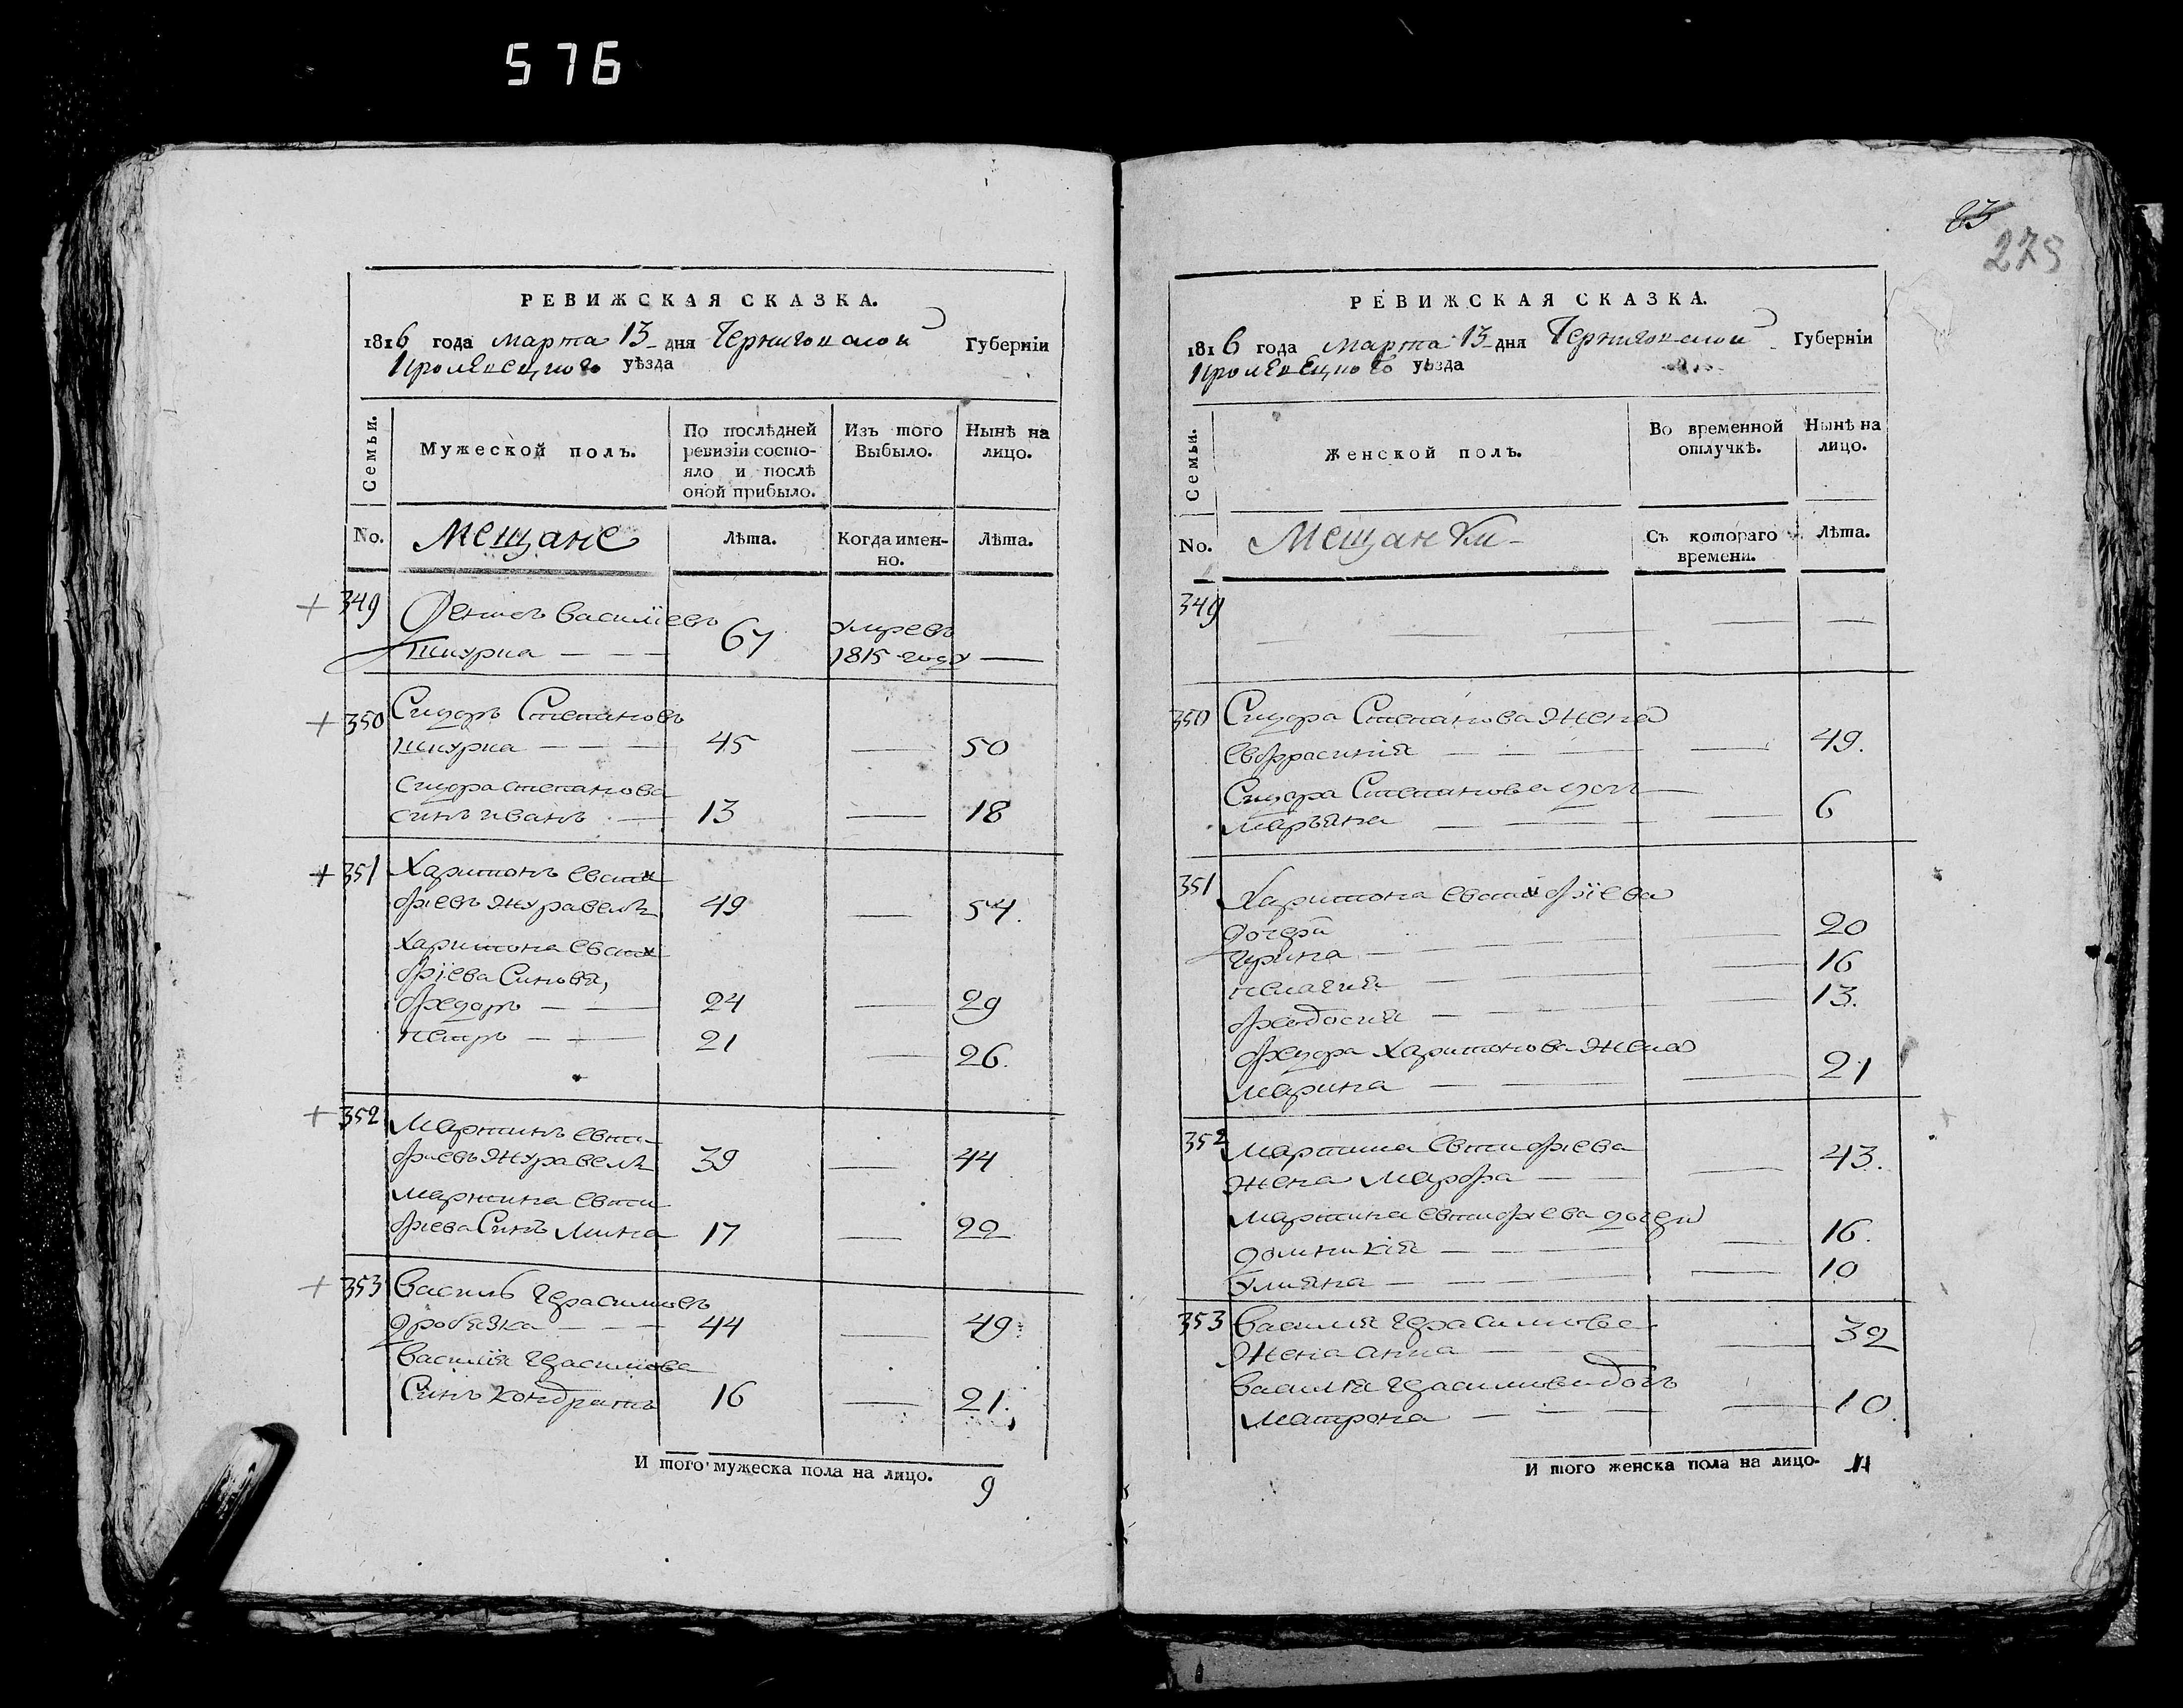 576
РЕВИЖСКАЯ СКАЗКА.
1816 года марта 13 дня Черниговской Губерніи
Кролевецкого уѣзда
Семьи.
Мужеской полъ.
По послѣдней ревизіи состояло и послѣ оной прибыло.
Изъ того Выбыло.
Нынѣ на лицо.
No.
Мещане
Лѣта.
Когда именно.
Лѣта.
+ 349
Василіевъ
Шкурка — — — 67 умревъ 1815 году —
+ 350
Сидоръ Степановъ
шкурка — — — 45 — 50
сидора степанова
синъ иванъ — 13 — 18
+ 351
Харитонъ евсти
фіевъ журавель 49 — 54.
харитона евсти
фіева Синовя,
федоръ — — 24 — 29
петръ — — 21 — 26.
+ 352
Мартинъ евсти
фіевъ журавель 39 — 44
мартина евсти
фіева Синъ мина 17 — 22
+ 353
Василь герасимовъ
дробязка — — — 44 — 49
василія герасимова
Синъ кондратъ 16 — 21.
И того мужеска пола на лицо. 9
23
275
РЕВИЖСКАЯ СКАЗКА.
1816 года марта 13 дня Черниговской Губерніи
Кролевецкого уѣзда
Семьи.
Женской полъ.
Во временной отлучкѣ.
Нынѣ на лицо.
No.
Мещанки
Съ котораго времени.
Лѣта.
349 — — — — —
350
Сидора Степанова жена
евфросинія — — — — 49.
Сидора Степанова дочъ —
марьяна — — — — 6
351
Харитона евстифіева
дочери
ирина — — — — 20
пелагия — — — — 16
феодосия — — — — 13.
федора харитонова жена
марина — — — 21
352
мартина евстифіева
жена марфа — — — 43.
мартина евстифіева дочери
домникія — — — — 16.
улияна — — — — 10
353
василия герасимова
жена анна — — — 32
василия герасимова дочъ
матрона — — — — 10.
И того женска пола на лицо. 11